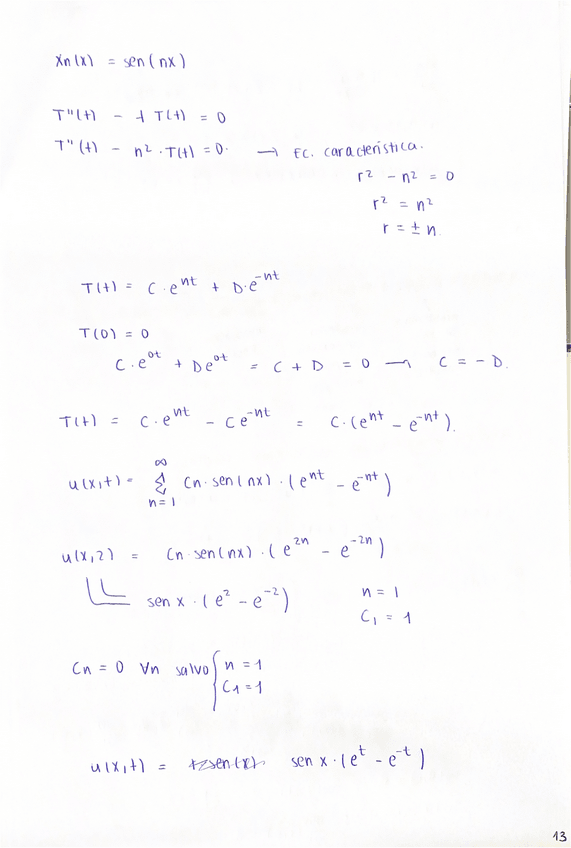 Xn(x) = sen(nx)
T''(t) - λ T(t) = 0
T''(t) - n² · T(t) = 0. → EC. característica.
r² - n² = 0
r² = n²
r = ± n.
T(t) = C · e^{nt} + D · e^{-nt}
T(0) = 0
C · e^{0t} + D e^{0t} = C + D = 0 → C = - D.
T(t) = C · e^{nt} - C e^{-nt} = C · (e^{nt} - e^{-nt}).
u(x,t) = ∑_{n=1}^{∞} Cn · sen(nx) · (e^{nt} - e^{-nt})
u(x,2) = Cn · sen(nx) · (e^{2n} - e^{-2n})
sen x · (e² - e^{-2}) n = 1
C₁ = 1
Cn = 0 ∀n salvo { n = 1
C₁ = 1
u(x,t) = sen x · (e^t - e^{-t})
13